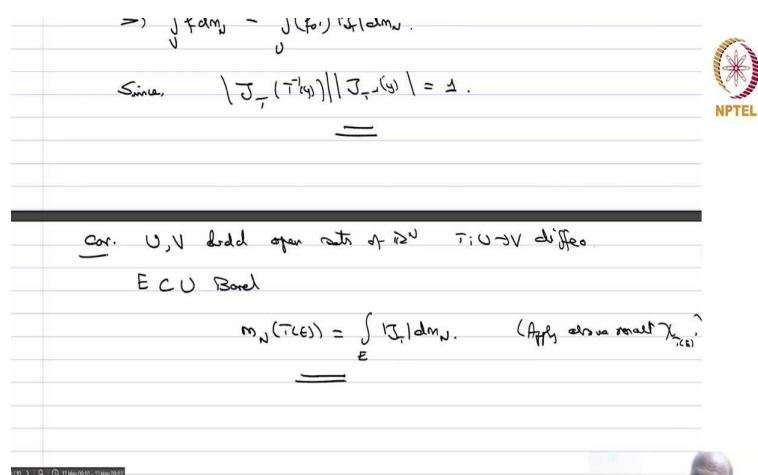 => ∫_V f dm_N = ∫_U (f∘T) |J_T| dm_N.
Since, |J_T (T^{-1}(y))| |J_{T^{-1}}(y)| = 1.
NPTEL
Cor. U, V bdd open sets of ℝ^N T: U→V diffeo.
E ⊂ U Borel
m_N(T(E)) = ∫_E |J_T| dm_N. (Apply above result χ_{T(E)})